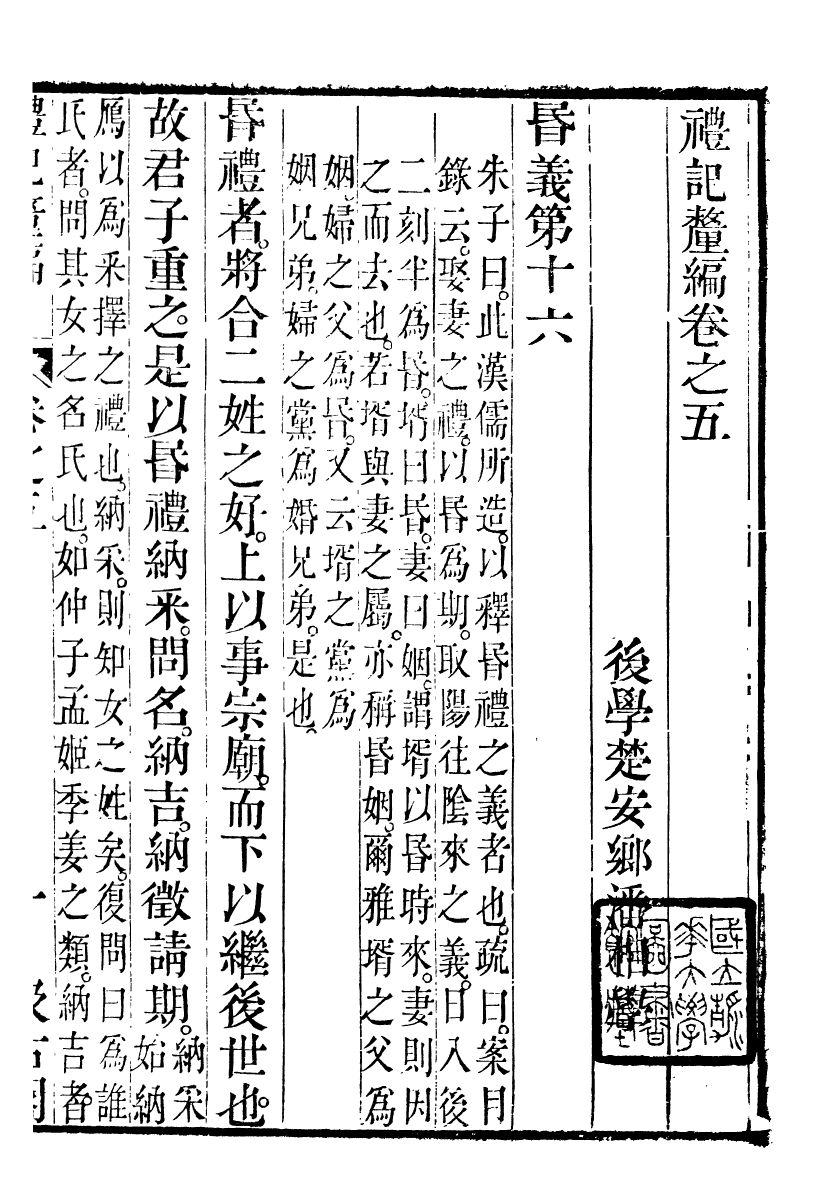 禮記釐編卷之五
後學楚安鄉潘相
昬義第十六
朱子曰。此漢儒所造。以釋昬禮之義者也。疏曰。案目
錄云。娶妻之禮。以昬爲期。取陽往陰來之義。日入後
二刻半爲昬。壻曰昬。妻曰姻。謂壻以昬時來。妻則因
之而去也。若壻與妻之屬。亦稱昬姻。爾雅壻之父爲
姻。婦之父爲昬。又云壻之黨爲
姻兄弟。婦之黨爲婚兄弟。是也。
昬禮者。將合二姓之好。上以事宗廟。而下以繼後世也。
故君子重之。是以昬禮納采。問名。納吉。納徵。請期。
納采
如納
鴈以爲采擇之禮也。納采。則知女之姓矣。復問曰爲誰
氏者。問其女之名氏也。如仲子孟姬季姜之類。納吉者。
禮記釐編 卷之五 一 汲古閣
國立
大學